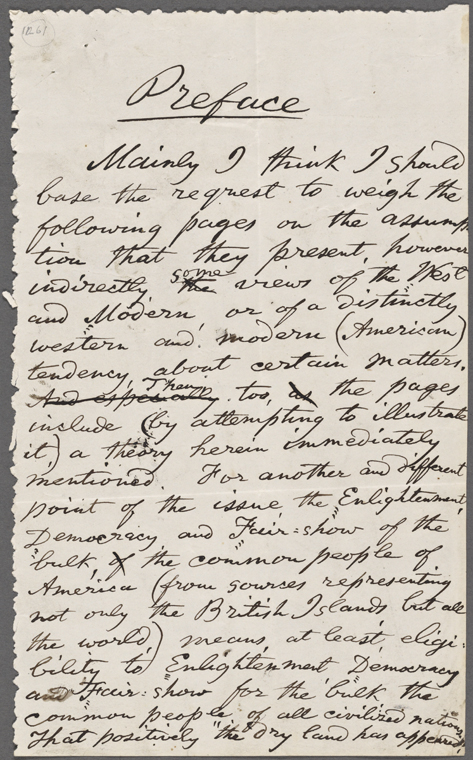 Preface
Mainly I think I should
base the request to weigh the
following pages on the assump-
tion that they present, however
indirectly, the some views of the West
and Modern, or of a distinctly
western and modern (American)
tendency, about certain matters.
And especially Then, too, as the pages
include (by attempting to illustrate
it,) a theory herein immediately
mentioned. For another and different
point of the issue, the Enlightenment,
Democracy and Fair-show of the
bulk, of the common people of
America (from sources representing
not only the British Islands but all
the world) means, at least, eligi-
bility to Enlightenment, Democracy
and Fair-show for the bulk, the
common people of all civilized nations.
That positively "the dry land has appeared,"